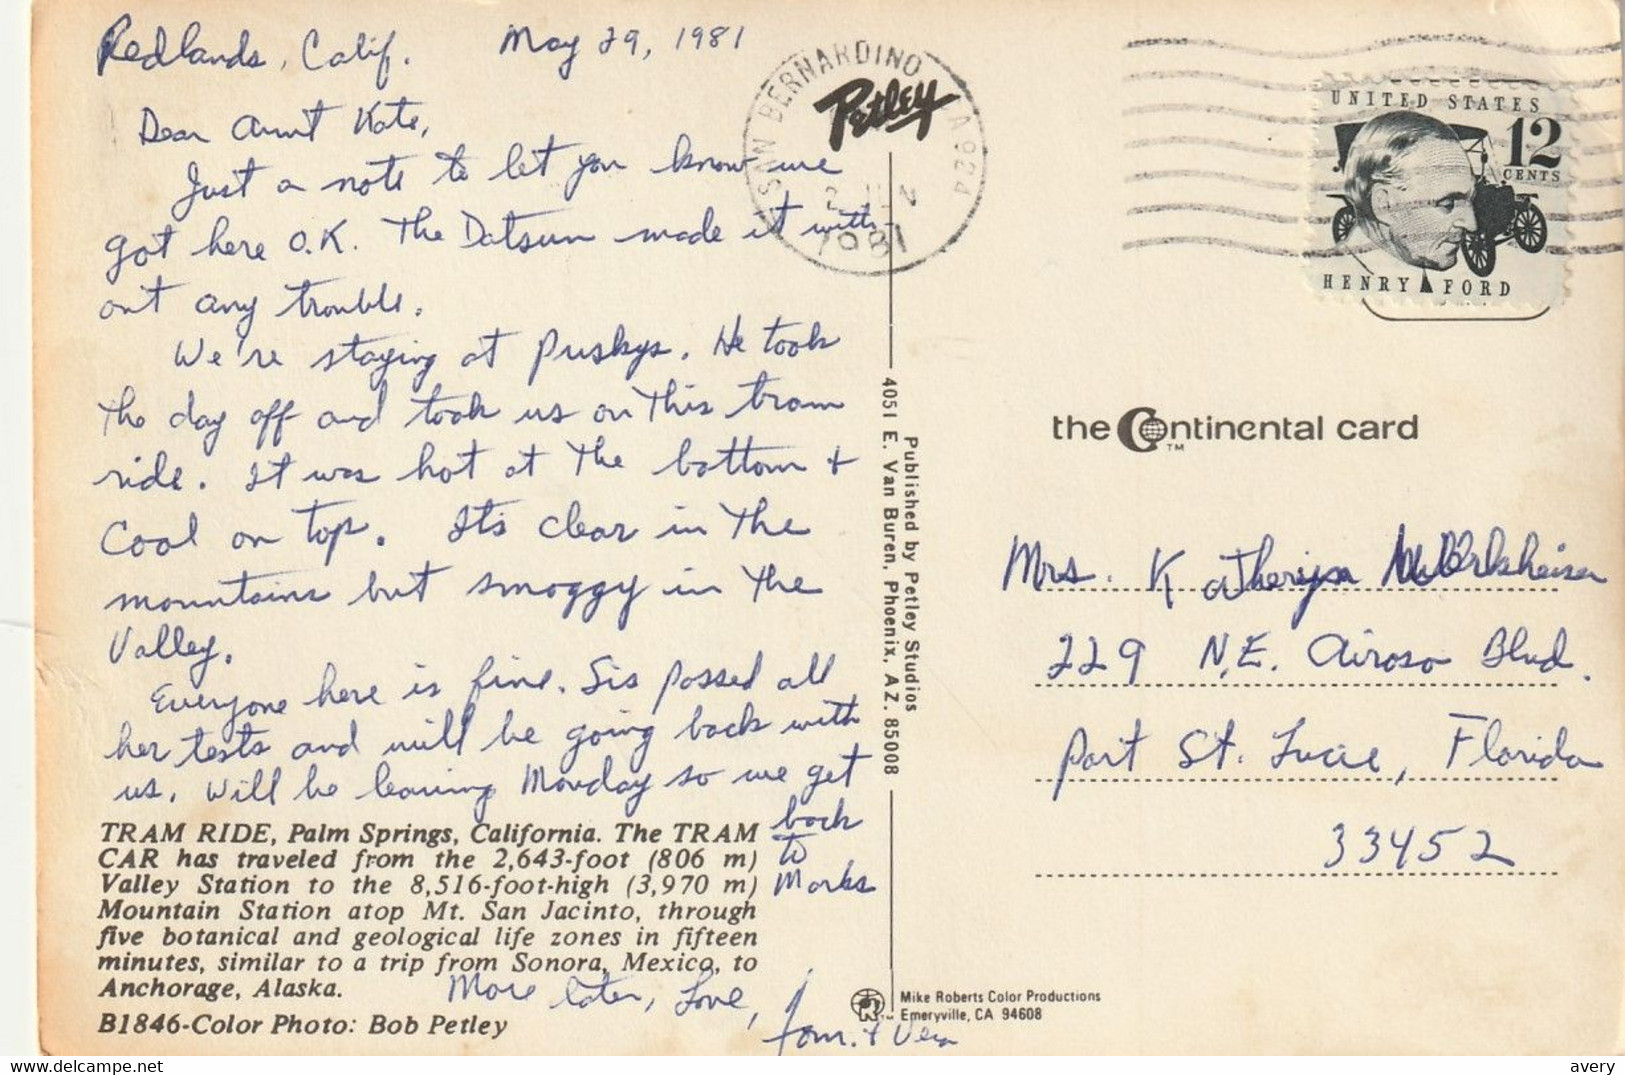 Redlands, Calif. May 29, 1981
Dear Aunt Kate,
Just a note to let you know we
got here O.K. The Datsun made it with-
out any trouble.
We're staying at Puskys. He took
the day off and took us on this tram
ride. It was hot at the bottom +
cool on top. It's clear in the
mountains but smoggy in the
Valley.
Everyone here is fine. Sis passed all
her tests and will be going back with
us. Will be leaving Monday so we get
back
to
Marks
More later, Love,
Tom. + Vera
TRAM RIDE, Palm Springs, California. The TRAM
CAR has traveled from the 2,643-foot (806 m)
Valley Station to the 8,516-foot-high (3,970 m)
Mountain Station atop Mt. San Jacinto, through
five botanical and geological life zones in fifteen
minutes, similar to a trip from Sonora, Mexico, to
Anchorage, Alaska.
B1846-Color Photo: Bob Petley
SAN BERNARDINO
CA 924
2 JUN
1981
Petley
Published by Petley Studios
4051 E. Van Buren, Phoenix, AZ. 85008
UNITED STATES
12
CENTS
HENRY FORD
the Continental card
TM
Mrs. Katheryn
229 N.E. Airoso Blvd.
Port St. Lucie, Florida
33452
Mike Roberts Color Productions
Emeryville, CA 94608
avery